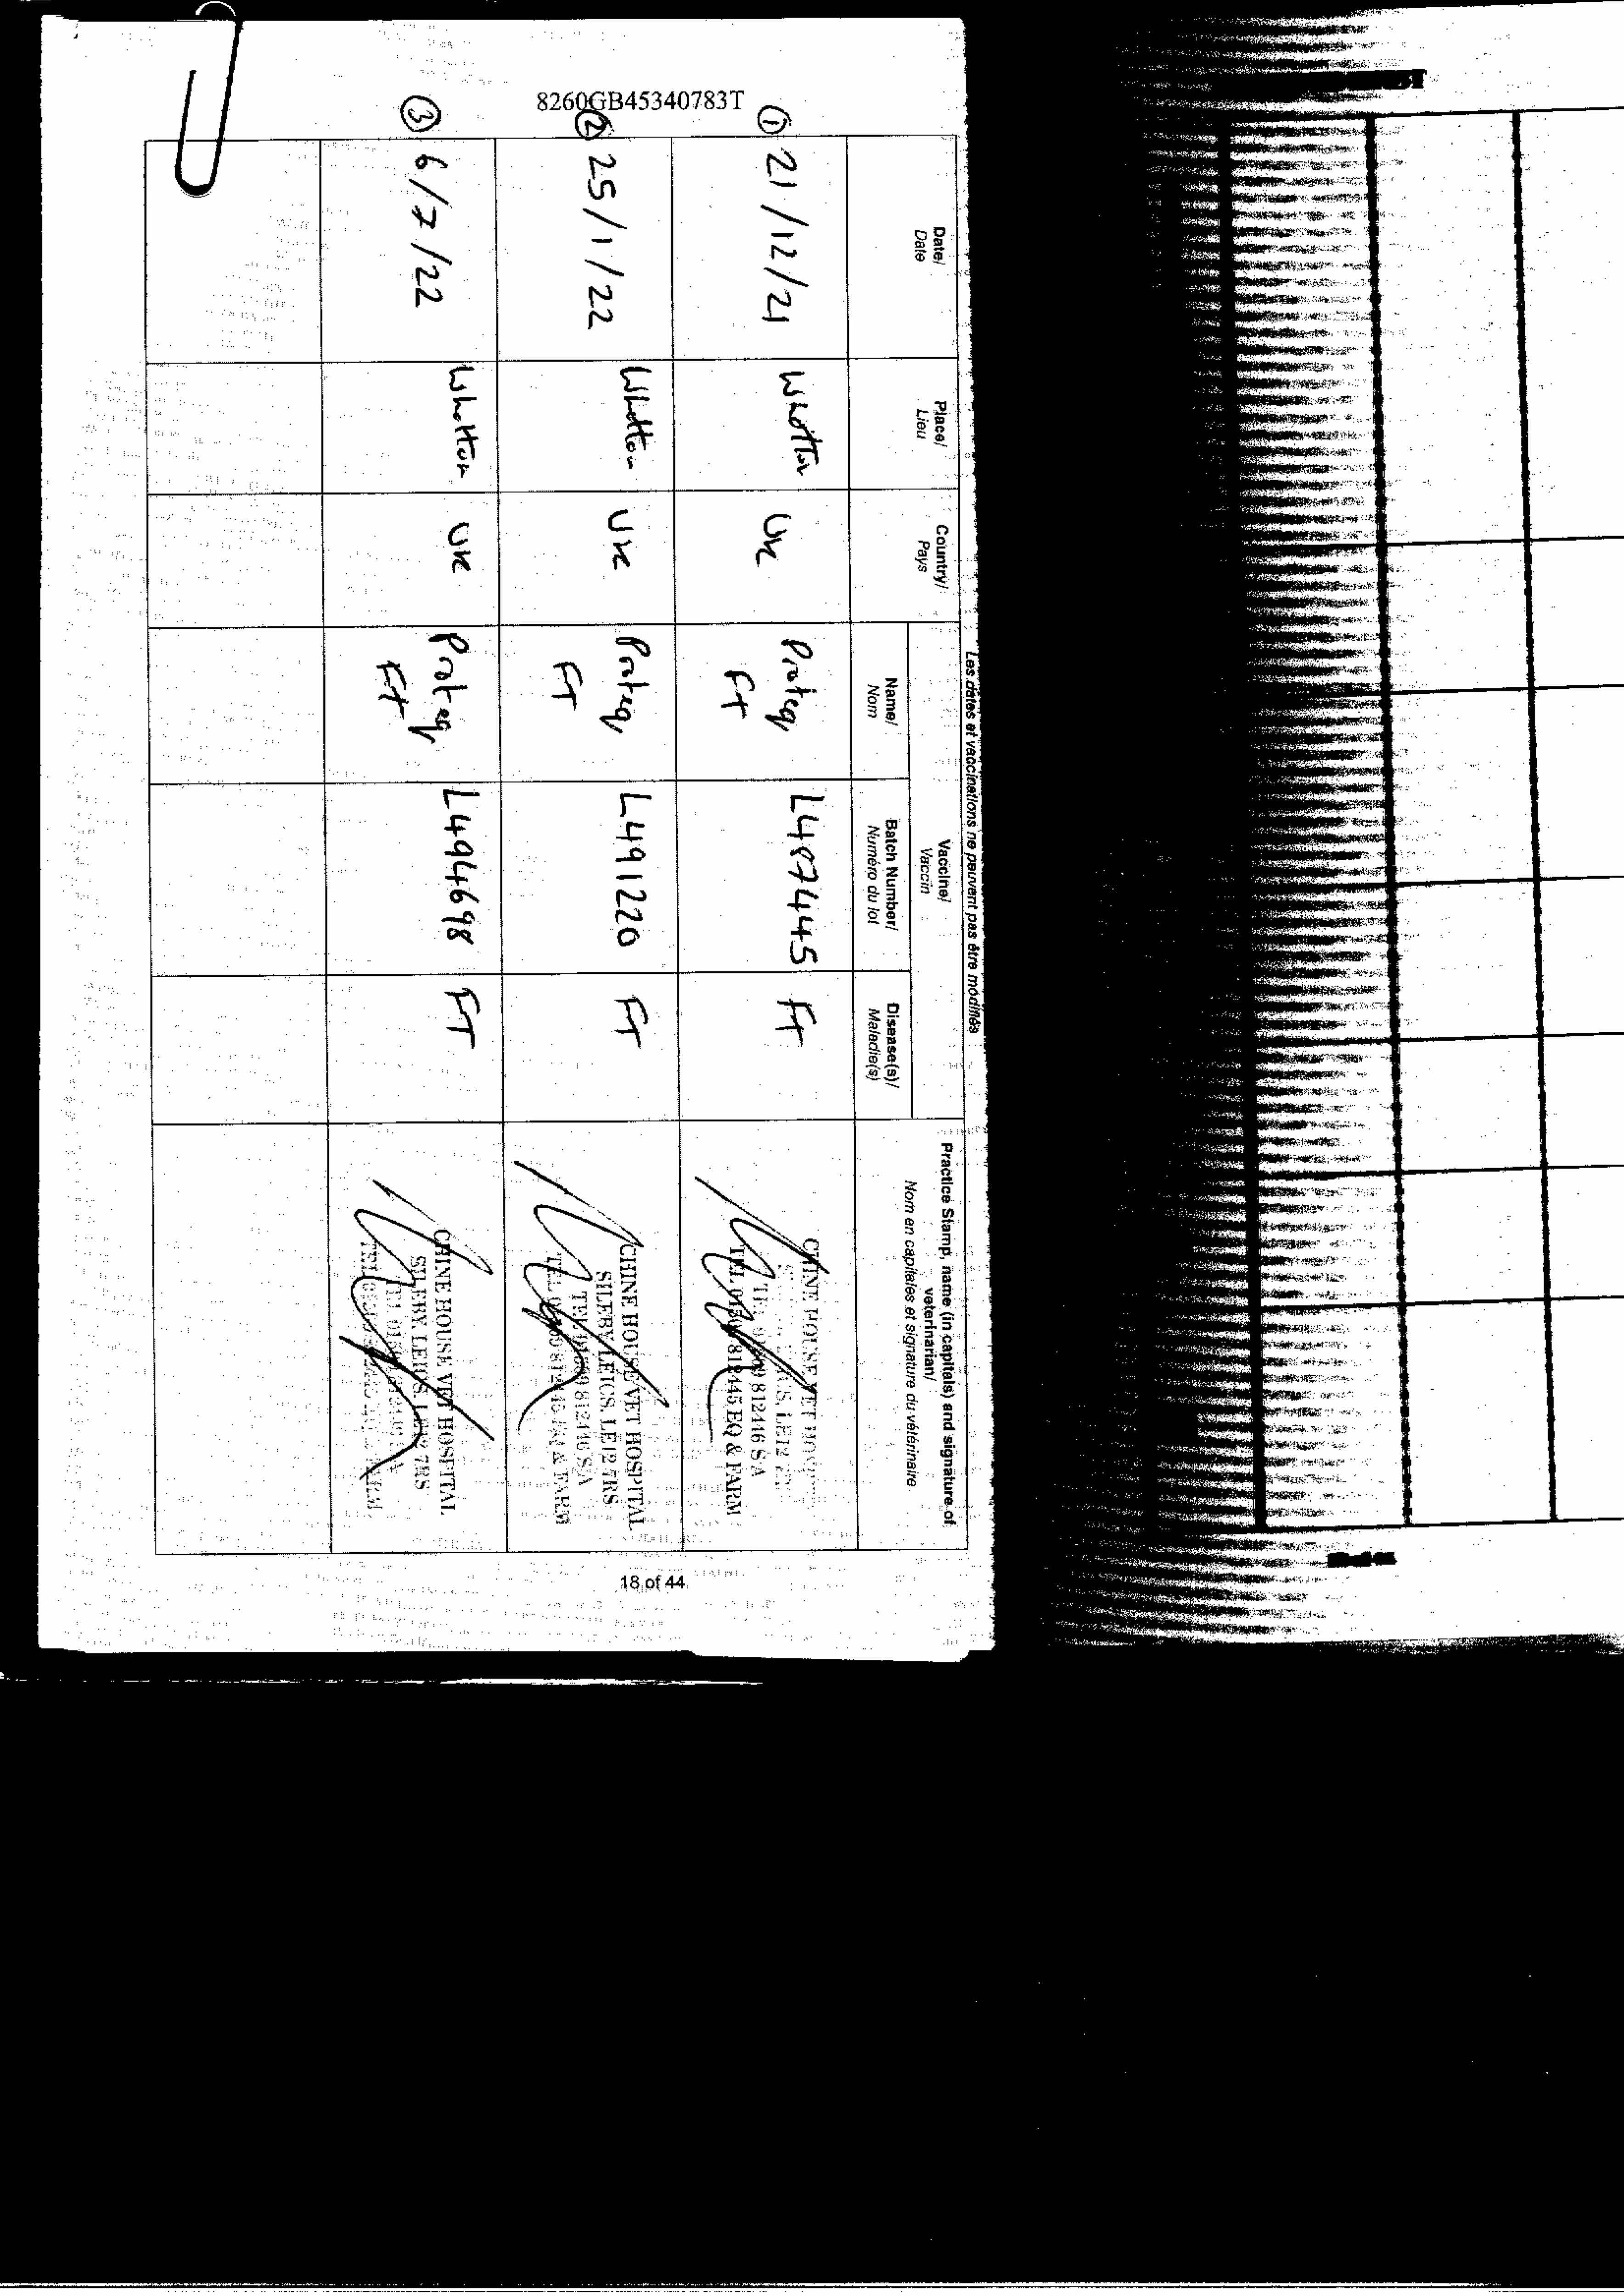 8260GB45340783T
Les dates et vaccinations ne peuvent pas être modifiés
Date/
Date
Place/
Lieu
Country/
Pays
Vaccine/
Vaccin
Name/
Nom
Batch Number/
Numéro du lot
Disease(s)/
Maladie(s)
Practice Stamp, name (in capitals) and signature of
veterinarian/
Nom en capitales et signature du vétérinaire
① 21/12/21 Whatton UK Proteq FT L487445 FT
CHINE HOUSE VET
LE12
812446 SA
TEL 812445 EQ & FARM
② 25/1/22 Whatton UK Proteq FT L491220 FT
CHINE HOUSE VET HOSPITAL
SILEBY, LEICS, LE12 7RS
TEL 01509 812446 SA
TEL & FARM
③ 6/7/22 Whatton UK Proteq FT L494698 FT
CHINE HOUSE VET HOSPITAL
SILEBY, LEICS, LE12 7RS
18 of 44